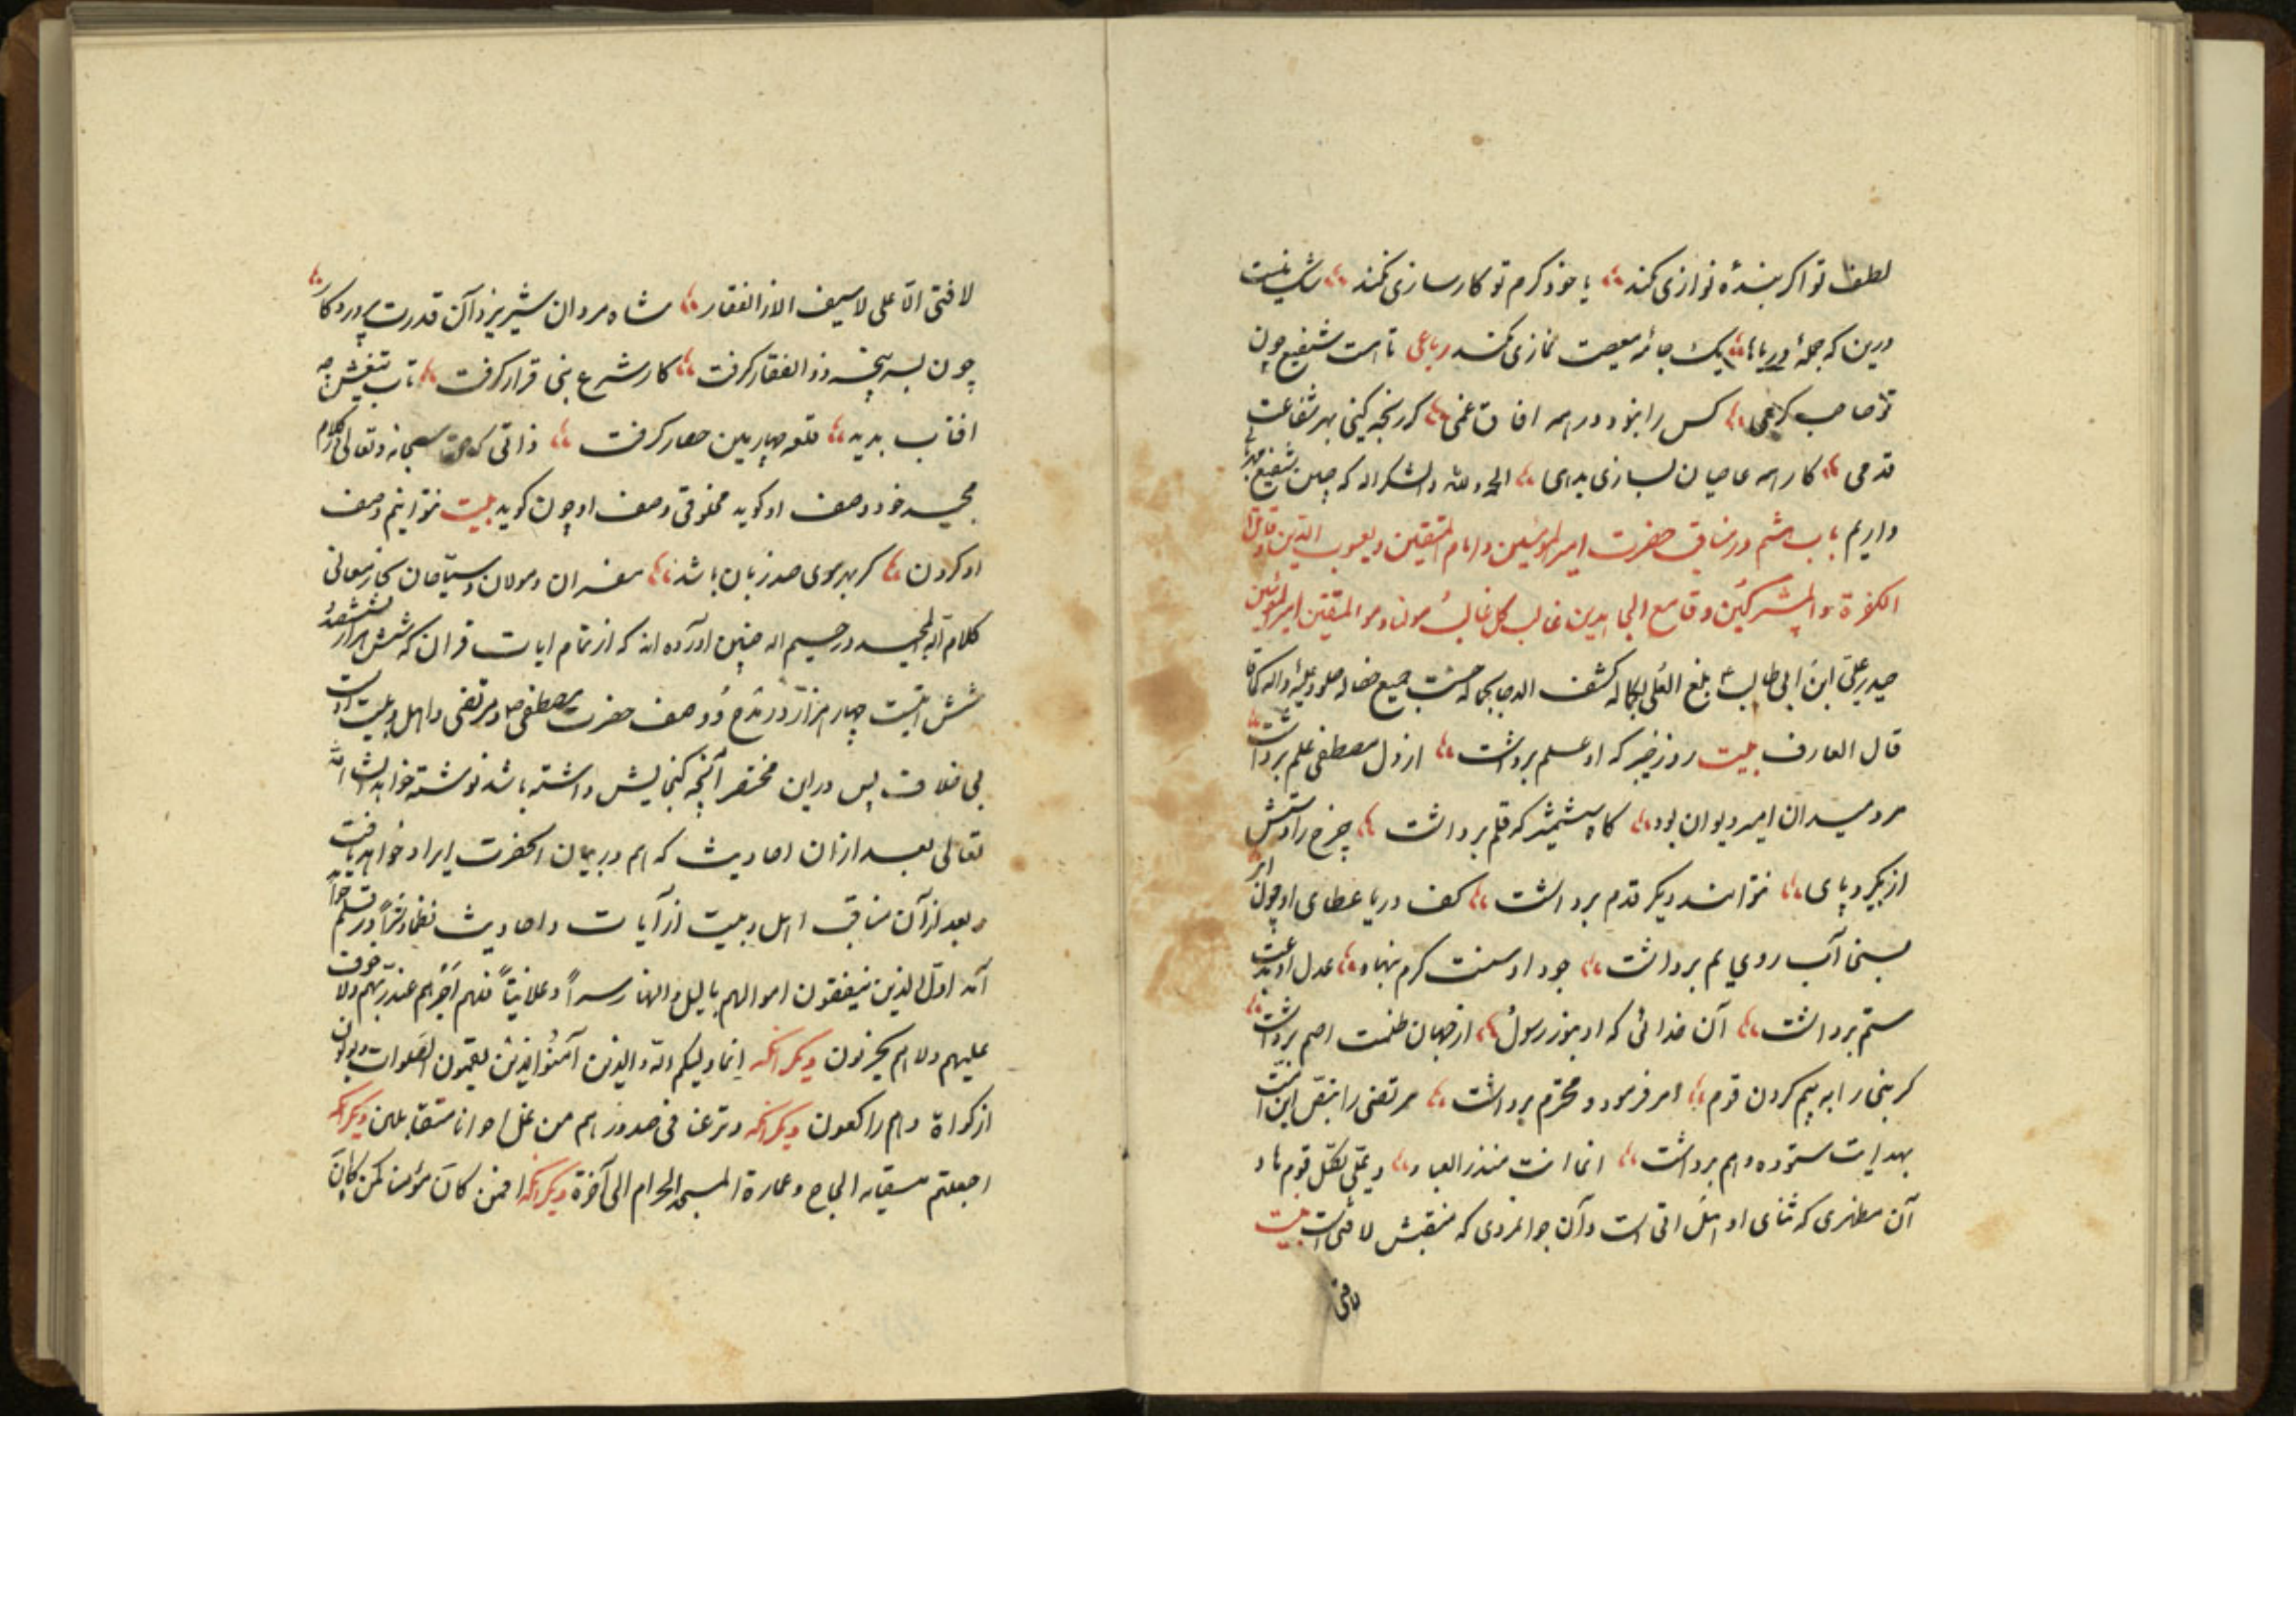 لطف تو اکر بندهٔ نوازی نکند یا خود کرم تو کارسازی نکند شک نیست
درین که جملهٔ دریاها یک جامهٔ معصیت نمازی نکند رباعی تا هست شفیع چون
تو صاحب کرمی کس را نبود در همه افاق غمی کر رنجه کنی بهر شفاعت
قدمی کار همه عاصیان بسازی بدمی الحمد لله والشکر له که چنین شفیع
داریم باب ششم در مناقب حضرت امیرالمؤمنین و امام المتقین و یعسوب الدین و قاتل
الکفرة و المشرکین و قامع المجاهدین غالب کل غالب مولانا و مولا المتقین امیرالمؤمنین
حیدر علی ابن ابی طالب بلغ العلی بکماله کشف الدجی بجماله حسنت جمیع خصاله صلوا علیه و اله
قال العارف بیت روز خیبر که او علم برداشت از دل مصطفی علم برداشت
مرد میدان امیر دیوان بود کاه شمشیر که قلم برداشت چرخ را دستش
از بکیرد پای نتواند دیکر قدم برداشت کف دریا عطای او چون ابر
بسخی آب روی یم برداشت جود او سنت کرم بنهاد عدل او بدعت
ستم برداشت آن خدائی که او بنور رسول از جهان ظلمت اصم برداشت
کر بنی را به بیم کردن قوم امر فرمود و محترم برداشت مرتضی را بنقل این امت
بهدایت ستوده و هم برداشت انما انت منذر العباد و علی لکل قوم هاد
آن مطهری که ثنای او هل اتی است و آن جوانمردی که منقبتش لا فتی است بیت
لا فتی
لا فتی الا علی لا سیف الا ذوالفقار شاه مردان شیر یزدان آن قدرت پروردکار
چون بسرپنجه ذوالفقار کرفت کار شرع نبی قرار کرفت تاب تیغش چو
افتاب بدید قلعه چهارمین حصار کرفت ذاتی که حق سبحانه و تعالی در کلام
مجید خود وصف او کوید مخلوقی وصف او چون کوید بیت نتوانیم وصف
او کردن کر بهر موی صد زبان باشد مفسران و مولان و سیاحان بحار معانی
کلام اله المجید و رحیم اله چنین آورده اند که از تمام ایات قران که شش هزار و ششصد
شش ایتست چهار هزار در مدح و وصف حضرت مصطفی و مرتضی و اهل بیت اوست
بی خلاف پس در این مختصر آنچه کنجایش داشته باشد نوشته خواهد شد ان شاء الله
تعالی بعد از ان احادیث که هم در بیان انحضرت ایراد خواهد یافت
و بعد از آن مناقب اهل بیت از آیات و احادیث نظما و نثرا در قلم خواهد
آمد اول الذین ینفقون اموالهم بالیل والنهار سرا و علانیتا فلهم اجرهم عند ربهم ولا خوف
علیهم ولا هم یحزنون دیکر انکه انما ولیکم اله والذین آمنوا الذین یقیمون الصلوات و یؤتون
الزکواة و هم راکعون دیکر انکه و نزعنا فی صدورهم من غل اخوانا متقابلین دیکر انکه
اجعلتم سقایه الحاج و عمارة المسجد الحرام الی آخرة دیکر انکه افمن کان مؤمنا کمن کان